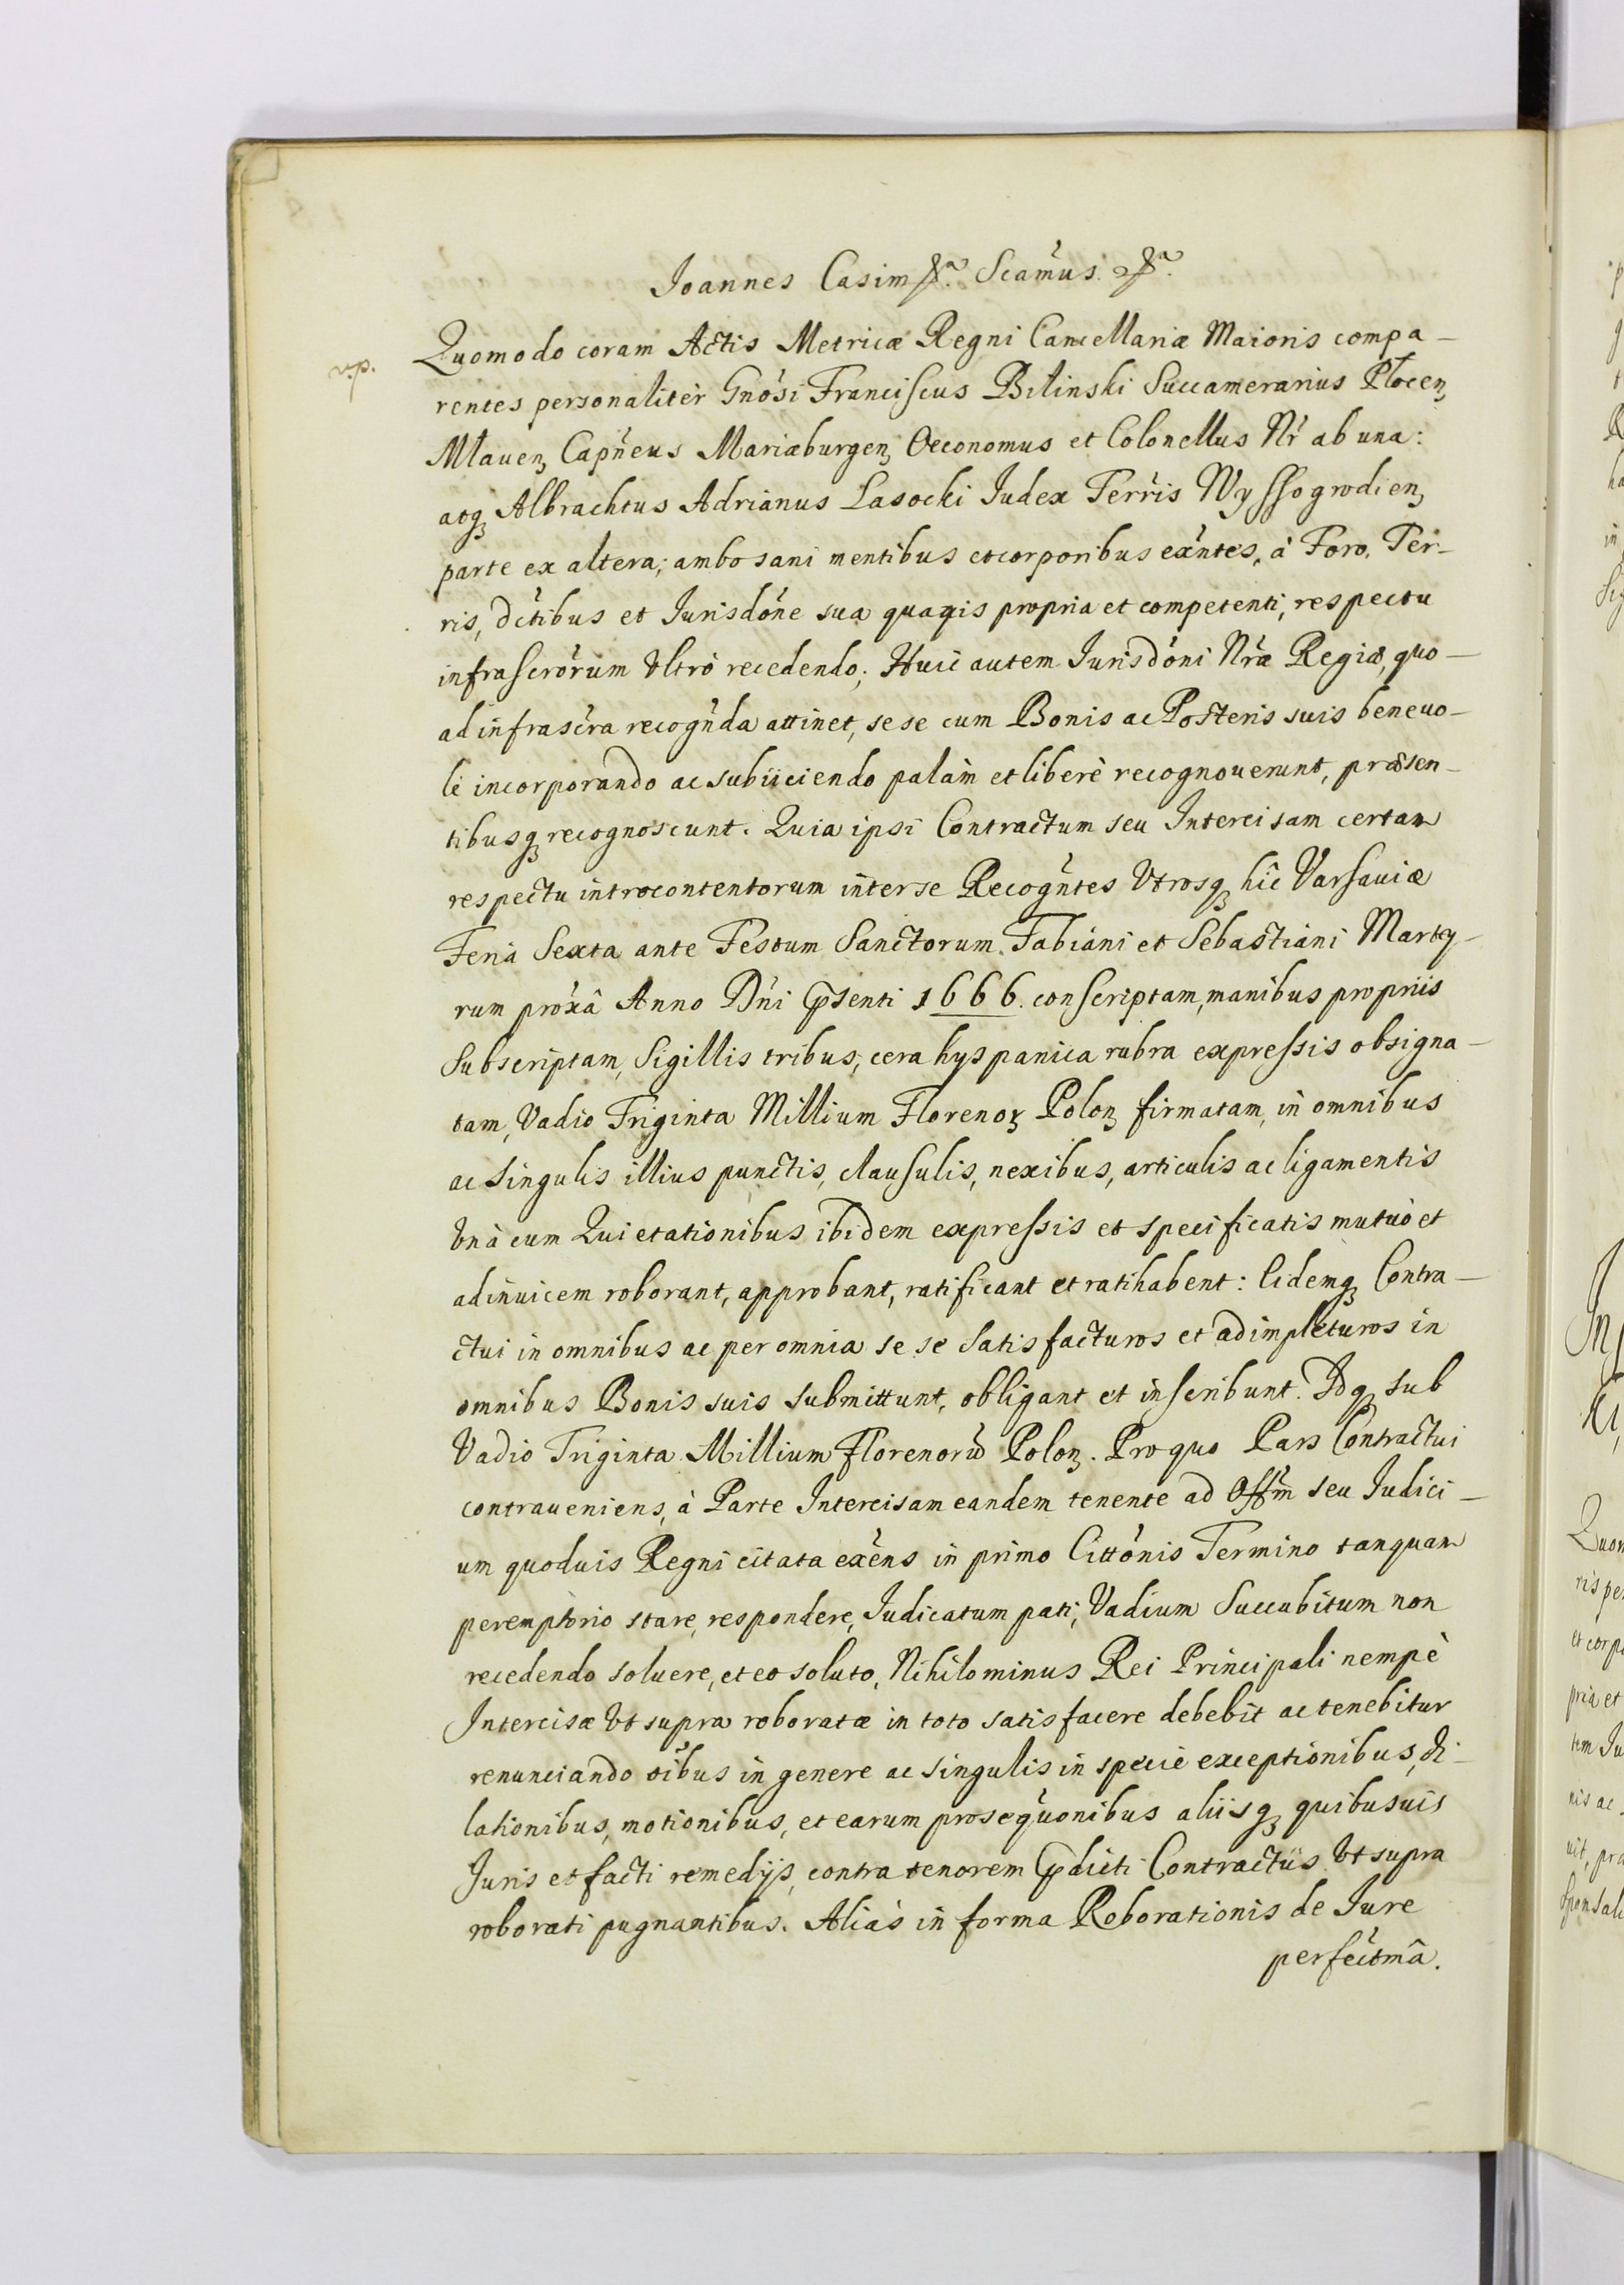 Joannes Casim &c. Scamus. &c.
v.p.
Quomodo coram Actis Metricæ Regni Cancellariæ Maioris compa-
rentes personalitèr Gnosi Franciscus Bilinski Succamerarius Płocenꝫ
Młauenꝫ Capneus Mariæburgenꝫ Oeconomus et Colonellus Nr ab una:
atqꝫ Albrachtus Adrianus Lasocki Judex Terris Wyssogrodienꝫ
parte ex altera; ambo sani mentibus et corporibus exntes, à Foro, Ter-
ris, Dctibus et Jurisdone sua quavis propria et competenti, respectu
infrascrorum Vltrò recedendo; Huic autem Jurisdoni Nræ Regiæ, quo-
ad infrascra recognda attinet, sese cum Bonis ac Posteris suis beneuo-
lè incorporando ac subijciendo palàm et liberè recognouerunt, præsen-
tibusqꝫ recognoscunt. Quia ipsi Contractum seu Intercisam certam
respectu introcontentorum inter se Recogntes Vtrosqꝫ hîc Varsauiæ
Feria Sexta ante Festum Sanctorum Fabiani et Sebastiani Marty-
rum proxâ Anno Dni pscnti 1666. conscriptam, manibus propriis
Subscriptam, Sigillis tribus, cera hyspanica rubra expressis obsigna-
tam, Vadio Triginta Millium Florenoꝝ Polonꝫ firmatam, in omnibus
ac singulis illius punctis, clausulis, nexibus, articulis ac ligamentis
Vnà cum Quietationibus ibidem expressis et specificatis mutuò et
adinuicem roborant, approbant, ratificant et ratihabent: Eidemqꝫ Contra-
ctui in omnibus ac per omnia se se satisfacturos et adimpleturos in
omnibus Bonis suis submittunt, obligant et inscribunt. Idqꝫ sub
Vadio Triginta Millium Florenorũ Polonꝫ. Pro quo Pars Contractui
contraueniens, à Parte Intercisam eandem tenente ad Offm seu Judici-
um quoduis Regni citata exens in primo Cittonis Termino tanquam
peremptorio stare, respondere, Judicatum pati, Vadium Succubitum non
recedendo soluere, et eo soluto, Nihilominus Rei Principali nempè
Intercisæ Vt supra roboratæ in toto satisfacere debebit ac tenebitur
renunciando oibus in genere ac singulis in specie exceptionibus, di-
lationibus, motionibus, et earum prosequonibus aliisqꝫ quibusuis
Juris et facti remedijs, contra tenorem pdicti Contractûs Vt supra
roborati pugnantibus. Aliàs in forma Roborationis de Jure
perfectmâ.